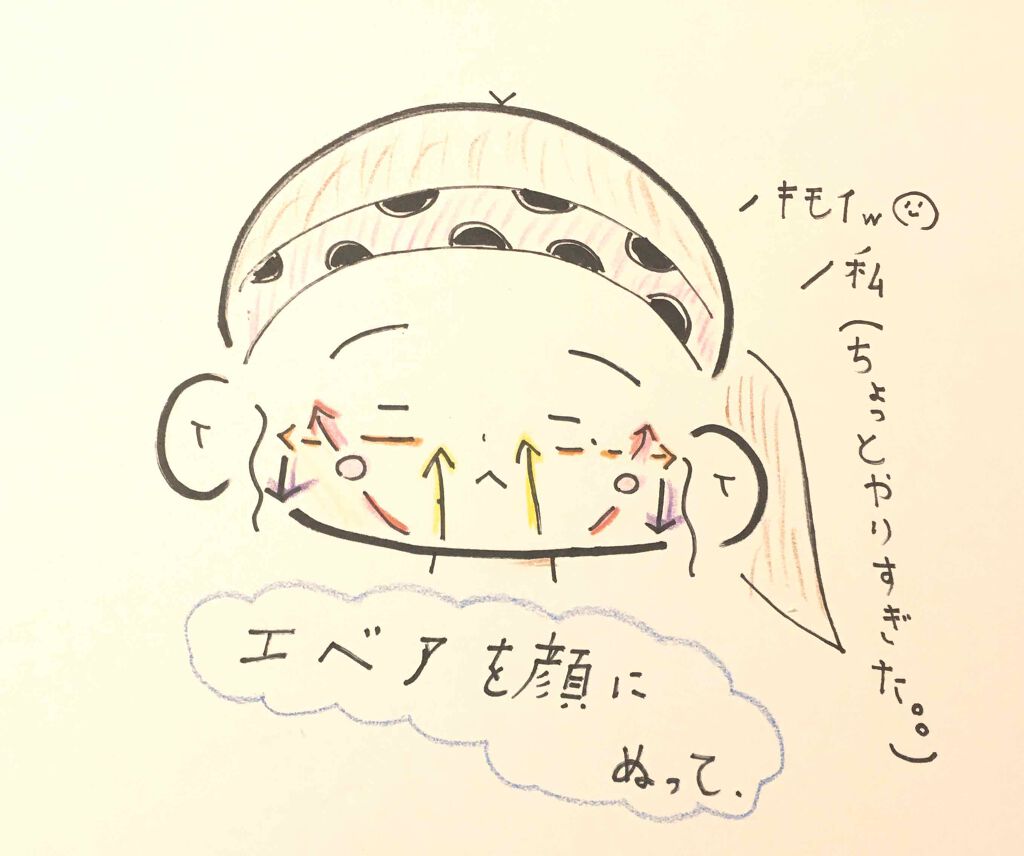 キモイw
私
(ちょっとやりすぎた。。)
エベアを顔に
ぬって.